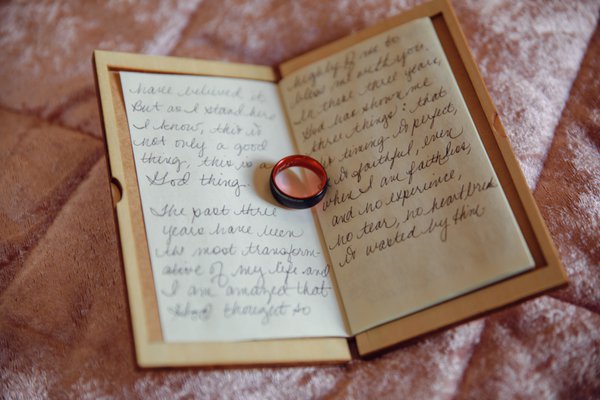 have believed it.
But as I stand here
I know, this is
not only a good
thing, this is a
God thing.
The past three
years have been
the most transform-
ative of my life and
I am amazed that
God thought so
highly of me to
bless me with you.
In these three years,
God has shown me
three things: that
his timing is perfect,
is faithful, even
when I am faithless,
and no experience,
no tear, no heartbreak
is wasted by Him